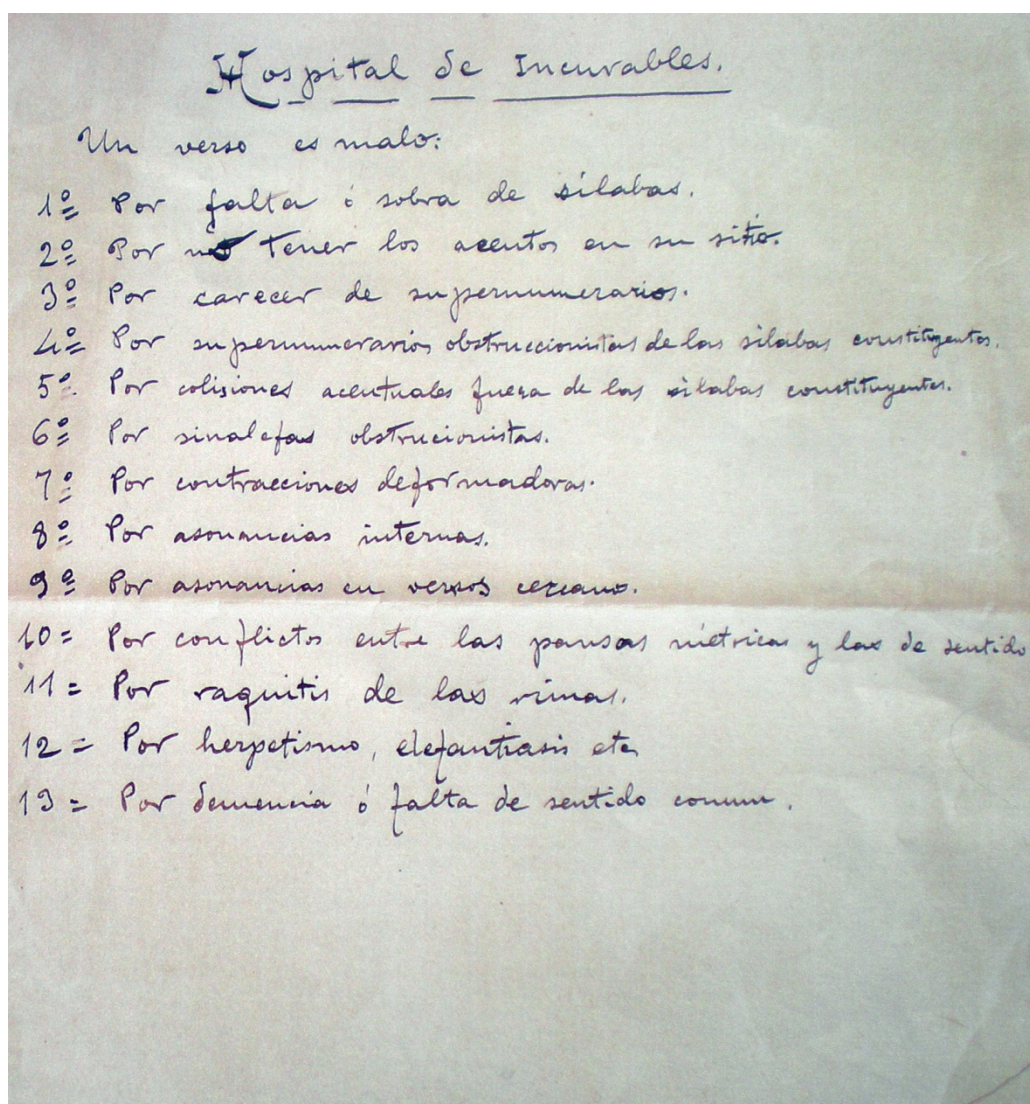 Hospital de Incurables.
Un verso es malo:
1º Por falta ó sobra de sílabas.
2º Por no tener los acentos en su sitio.
3º Por carecer de supernumerarios.
4º Por supernumerarios obstruccionistas de las sílabas constituyentes.
5º Por colisiones acentuales fuera de las sílabas constituyentes.
6º Por sinalefas obstrucionistas.
7º Por contracciones deformadoras.
8º Por asonancias internas.
9º Por asonancias en versos cercanos.
10= Por conflictos entre las pausas métricas y las de sentido
11= Por raquitis de las rimas.
12= Por herpetismo, elefantiasis etc
13= Por demencia ó falta de sentido comun.